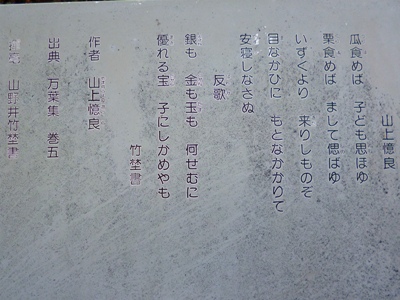 山上憶良
瓜食めば 子ども思ほゆ
栗食めば まして偲ばゆ
いずくより 来りしものぞ
目なかひに もとなかかりて
安寝しなさぬ
反歌
銀も 金も玉も 何せむに
優れる宝 子にしかめやも
竹埜書
作者 山上憶良
出典 万葉集 巻五
山野井竹埜書